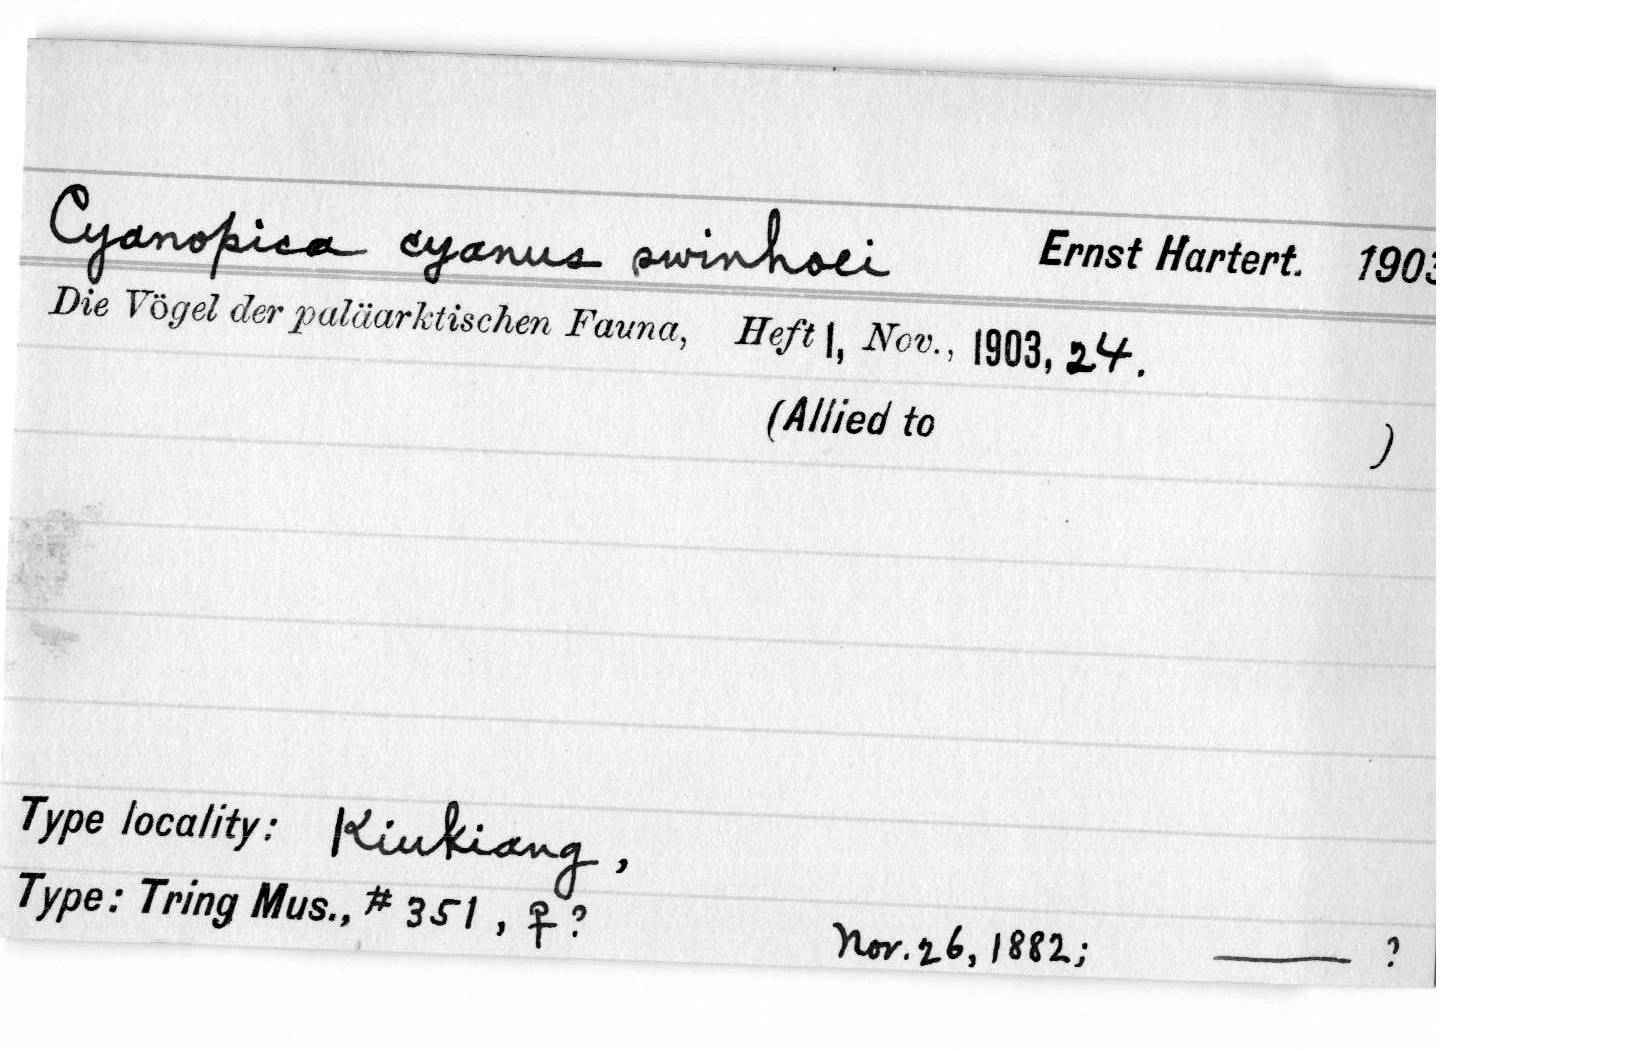 Cyanopica cyanus swinhoei Ernst Hartert. 1903
Die Vögel der paläarktischen Fauna, Heft 1, Nov., 1903, 24.
(Allied to )
Type locality: Kiukiang,
Type: Tring Mus., # 351, ♀?
Nov. 26, 1882; —— ?